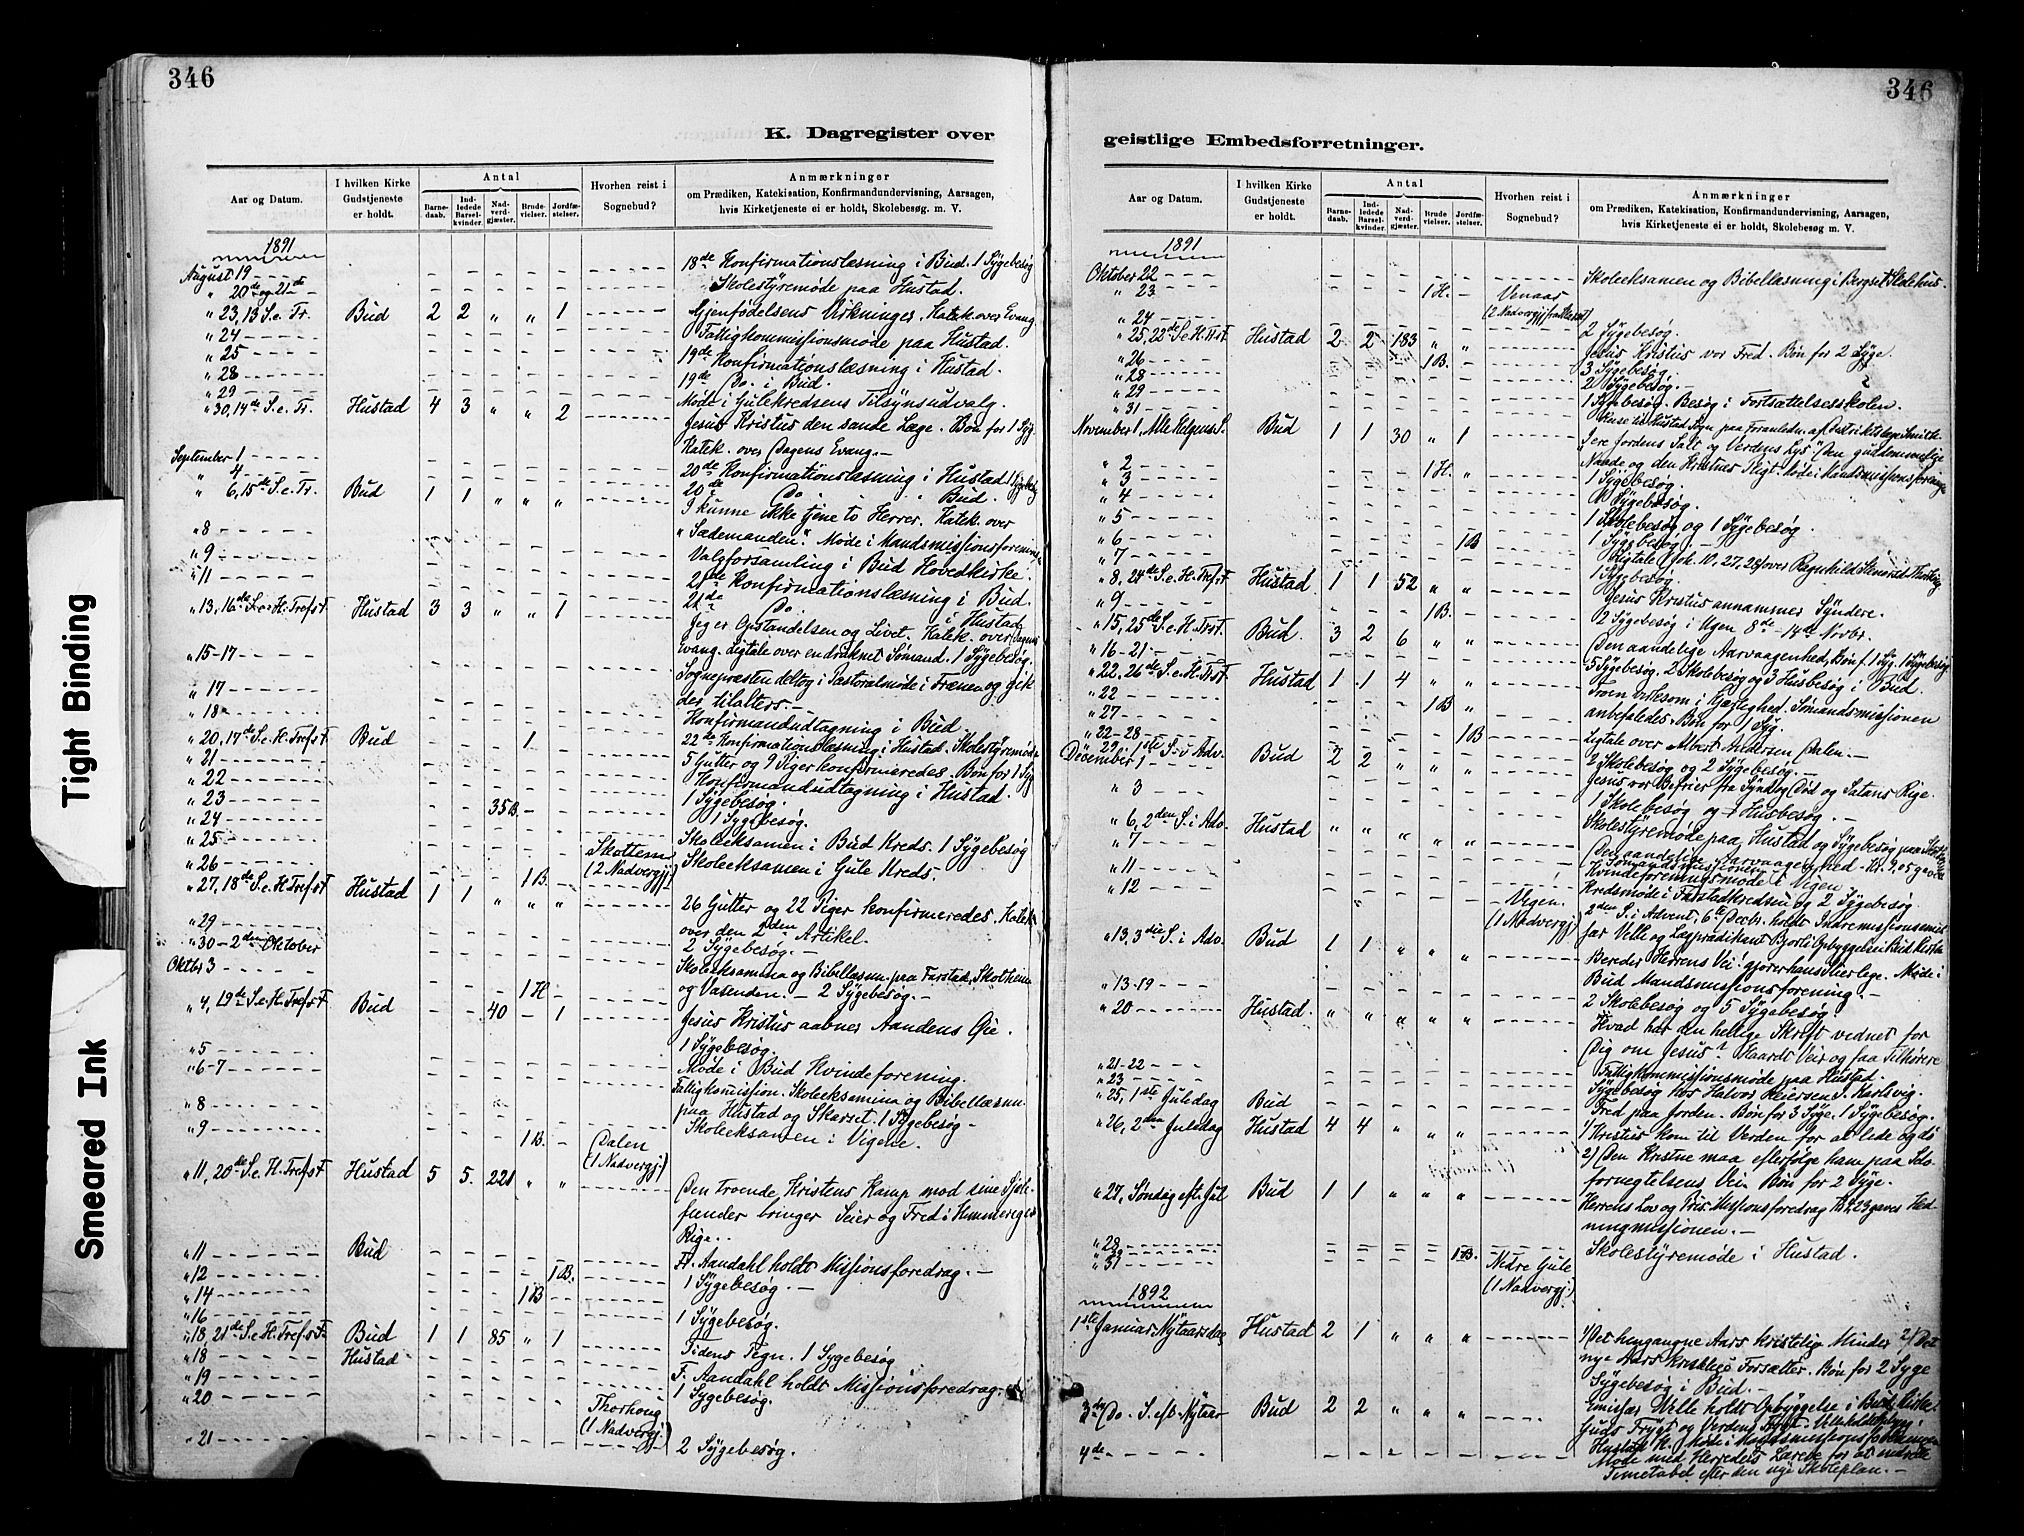 346
K. Dagregister over
Aar og Datum.
I hvilken Kirke Gudstjeneste er holdt.
Antal
Barnedaab.
Indledede Barselkvinder.
Nadverdgjæster.
Brudevielser.
Jordfæstelser.
Hvorhen reist i Sognebud?
Anmærkninger
om Prædiken, Katekisation, Konfirmandundervisning, Aarsagen,
hvis Kirketjeneste ei er holdt, Skolebesøg. m. V.
1891
August 19 18de Konfirmationslæsning i Bud. 1 Sygebesøg
" 20de og 21de Skolestyremøde paa Hustad.
" 23, 13 S. e. Tr. Bud 2 2 " " 1 Gjenfødelsens Virkninger. Katek. over Evang.
" 24 Fattigkommissionsmøde paa Hustad.
" 25 19de Konfirmationslæsning i Hustad.
" 28 19de Do. i Bud.
" 29 Møde i Gulekredsens Tilsynsudvalg.
" 30, 14de S. e. Tr. Hustad 4 3 " " 2 Jesus Kristus den sande Læge. Bøn for 1 Syg.
Katek. over Dagens Evang.
September 1 20de Konfirmationslæsning i Hustad. 1 Sygebesøg
" 4 20de Do. i Bud.
" 6, 15de S. e. Tr. Bud 1 1 " " " I kunne ikke tjene to Herrer. Katek. over
"Sædemanden". Møde i Mandsmissionsforening.
" 8 Valgforsamling i Bud Hovedkirke.
" 9 21de Konfirmationslæsning i Bud.
" 11 21de Do. i Hustad
" 13, 16de S. e. H. Trefst. Hustad 3 3 " " 1 Jeg er Opstandelsen og Livet. Katek. over Dagens
Evang. Ligtale over en druknet Sømand. 1 Sygebesøg.
" 15-17 Sognepræsten deltog i Pastoralmøde i Frænen og gik
der tilalters.
" 17 Konfirmandudtagning i Bud.
" 18 22de Konfirmationslæsning i Hustad. Skolestyremøde
" 20, 17de S. e. H. Trefst. Bud 1 5 Gutter og 9 Piger konfirmeredes. Bøn for 1 Syg
" 21 Konfirmandudtagning i Hustad.
" 22 1 Sygebesøg.
" 23 35B. 1 Sygebesøg.
" 24
" 25 Skolecksamen i Bud Kreds. 1 Sygebesøg
" 26 Skottem (2 Nadvergj.) Skolecksamen i Gule Kreds.
" 27, 18de S. e. H. Trefst. Hustad 1 1 " 1B. " 26 Gutter og 22 Piger konfirmeredes. Katek.
over den 2den Artikel.
" 29 2 Sygebesøg.
" 30 - 2den Oktober Skolecksamina og Bibellæsn. paa Farstad, Skotheim
og Vasenden. - 2 Sygebesøg. -
Oktbr 3 1 H.
" 4, 19de S. e. H. Trefst. Bud 40 1 Jesus Kristus aabner Aandens Øie.
" 5 1 Sygebesøg.
" 6-7 Møde i Bud Kvindeforening.
Fattigkommission. Skolecksamina og Bibellæsn.
" 8 paa Hustad og Skarset. 1 Sygebesøg -
" 9 Skolecksamen i Vigene.
1 B. Dalen (1 Nadvergj.)
" 11, 20de S. e. H. Trefst. Hustad 5 5. 221 " " Den troende Kristens Kamp mod sine Sjæle-
fiender bringer Seier og Fred i Himmeriges
Rige.
" 11 Bud Fr. Aandahl holdt Missionsforedrag. -
" 12 1 B. 1 Sygebesøg. -
" 14 1 B
" 16 1 Sygebesøg.
" 18, 21de S. e. H. Trefst. Bud 1 1 85 " 1 Tidens Tegn. 1 Sygebesøg
" 18 Hustad F. Aandahl holdt Missionsforedrag.
" 19 1 Sygebesøg.
" 20 Thorhoug (1 Nadvergj.)
" 21 2 Sygebesøg.
346
geistlige Embedsforretninger.
Aar og Datum.
I hvilken Kirke Gudstjeneste er holdt.
Antal
Barnedaab.
Indledede Barselkvinder.
Nadverdgjæster.
Brudevielser.
Jordfæstelser.
Hvorhen reist i Sognebud?
Anmærkninger
om Prædiken, Katekisation, Konfirmandundervisning, Aarsagen,
hvis Kirketjeneste ei er holdt, Skolebesøg m. V.
1891
Oktober 22 Skolecksamen og Bibellæsning i Bergset Skolehus.
" 23 1 H. Venaas
" 24 2 Sygebesøg.
" 25, 22de S. e. H. Trst. Hustad 2 2 183 " " Jesus Kristus vor Fred. Bøn for 2 Syge.
" 26 1 B. 3 Sygebesøg.
" 28 2 Sygebesøg. -
" 29 1 Sygebesøg. Besøg i Fortsættelsesskolen.
" 31 Reise til Hustad Sogn paa Foranledn. af Distriktslæge Smith.
November 1, Alle Helgens S. Bud 1 1 30 " 1 I ere Jordens Salt og Verdens Lys. Den guddommelige
Naade og den Kristnes Pligt. Møde i Mandsmissionsforening
" 2 1 H. 1 Sygebesøg.
" 3 Sygebesøg.
" 4 1 Skolebesøg og 1 Sygebesøg.
" 5 1 Sygebesøg -
" 6 1B Ligtale (Joh. 10, 27, 28) over Ragnhild
" 7 1 Sygebesøg.
" 8, 24de S. e. H. Trefst. Hustad 1 1 52 " " Jesus Kristus annammer Syndere.
" 9 1 B. 2 Sygebesøg i Ugen 8de - 14de Novbr.
" 15, 25de S. e. H. Trst. Bud. 3 2 6 " " Den aandelige Aarvaagenhed. Bøn f. 1 Syg. 1 Sygebesøg
" 16-21 5 Sygebesøg. 2 Skolebesøg og 3 Husbesøg i Bud.
" 22, 26de S. e. H. Trst. Hustad 1 1 4 " " Troen virksom i Kjærlighed. Sømandsmissionen
anbefaledes. Bøn for 1 Syg.
" 22 1 B
" 27 Ligtale over Albert Andersen Dalen. -
" 22-28 1B 2 Skolebesøg og 2 Sygebesøg. -
" 29 1ste S. i Adv. Bud 2 2 " " " Jesus vor Befrier fra Synd og Død og Satans Rige.
December 1 1 Skolebesøg og 1 Husbesøg. -
" 3 Skolestyremøde paa Hustad og Sygebesøg paa
" 6, 2den S. i Adv. Hustad " " " " " Den aandelige Aarvaagenhed. Kr. 9,05 gaves
Sømandsmissionen.
" 7 Kvindeforeningsmøde i Vigen
" 11 Kredsmøde i Farstadkredsen og 2 Sygebesøg
" 12 Vigen. (1 Nadvergj.) 2den S. i Advent, 6te Decbr. holdt Indremissionsemis-
sær Velle og Lægprædikant Bjorli Opbyggelse i Bud Kirke
" 13, 3die S. i Adv. Bud 1 1 " " " Bereder Herrens Vei! gjører hans Stier lege. Møde i
Bud Mandsmissionsforening. -
" 13-19 2 Skolebesøg og 5 Sygebesøg
" 20 Hustad. " " " " " Hvad har den hellige Skrift vidnet for
Dig om Jesus? Haardt Veir og faa Tilhørere
" 21-22 Fattigkommissionsmøde paa Hustad.
" 23 Sygebesøg hos Halvor Reiersens. Karlsvig.
" 25, 1ste Juledag Bud Fred paa Jorden. Bøn for 3 Syge. 1 Sygebesøg.
" 26, 2den Juledag Hustad 4 4 " " " 1) Kristus kom til Verden for at lide og dø
2) Den Kristne maa efterfølge ham paa Selv-
fornegtelsens Vei. Bøn for 2 Syge.
" 27, Søndag eft. Jul Bud 1 1 " " " Herrens Lov og Pris. Missionsforedrag. Kr 1,23 gaves Hed-
ningmissionen. -
" 28 Skolestyremøde i Hustad.
" 30 1B.
" 31 Nedre Gule (1 Nadvergj.)
1892
1ste Januar, Nytaarsdag Hustad 2 1 " " " 1) Det hengangne Aars kristelig Minder 2) Det
nye Aars kristelige Forsætter. Bøn for 2 Syge
Sygebesøg i Bud. -
3die Do. S. eft. Nytaar Bud 2 2 " " " Emissær Velle holdt Opbyggelse i Bud Kirke.
Guds Frygt og Verdens Frygt.
Hustad K. Møde i Mandsmissionsforeningen
4de Møde med Herredets Lærere for at
Timetabel efter den nye Skoleplan. -
Tight Binding
Smeared Ink